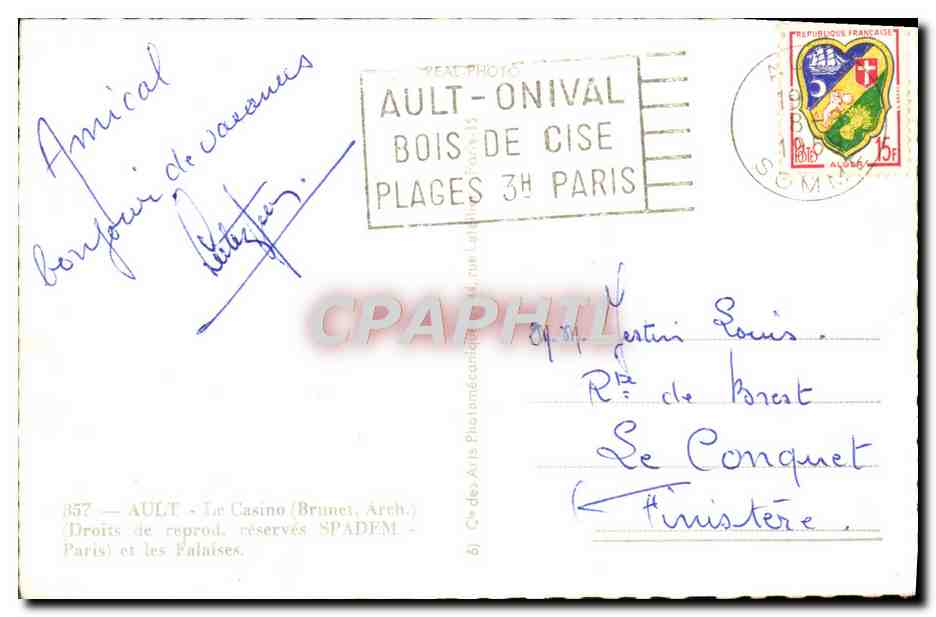 Amical
bonjour de vacances
REAL-PHOTO
AULT - ONIVAL
BOIS DE CISE
PLAGES 3H PARIS
SOMME
REPUBLIQUE FRANÇAISE
POSTES
ALGER
15F
CPAPHIL
Jestin Louis.
Rte de Brest
Le Conquet
Finistère.
6) Cie des Arts Photomécaniques, 44, rue Letellier, Paris-15
857 — AULT - Le Casino (Brunet, Arch.)
(Droits de reprod. réservés SPADEM -
Paris) et les Falaises.